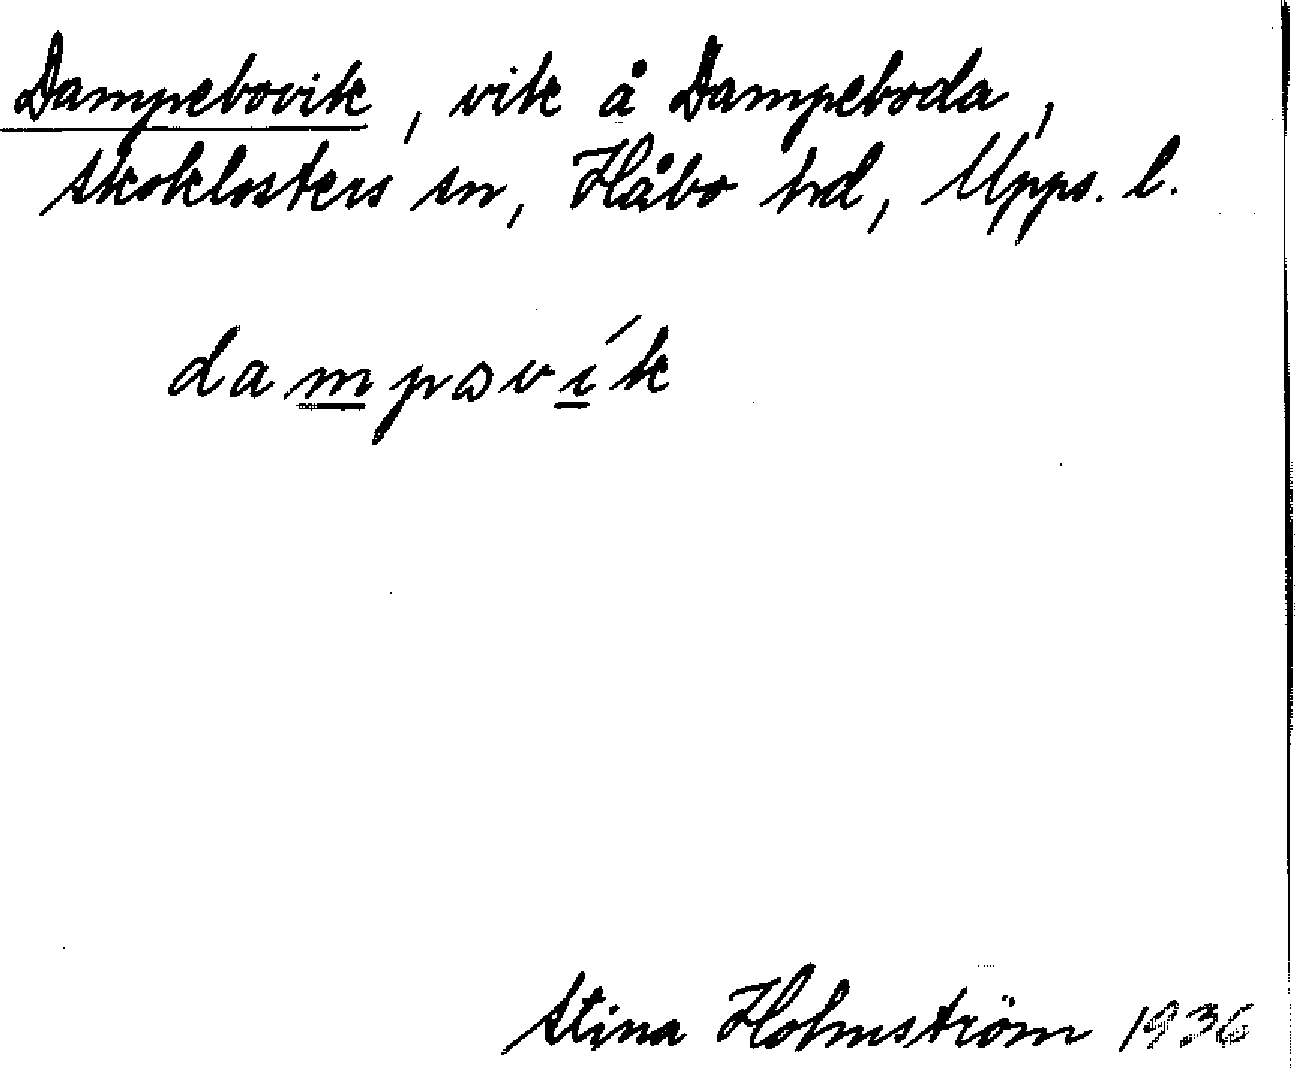 Dampebovik, vik å Dampeboda,
Skoklosters sn, Håbo hd, Upps. l.
dampavík
Stina Holmström 1936